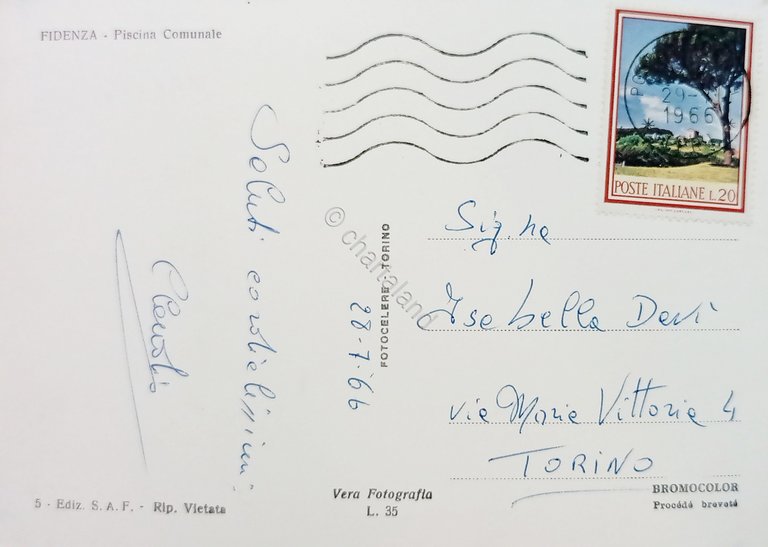 FIDENZA - Piscina Comunale
Saluti cordialissimi
28-7-66
FOTOCELERE TORINO
© chartaland
29-
1966
POSTE ITALIANE L.20
Sig.na
Isabella Davì
via Maria Vittoria 4
TORINO
5 - Ediz. S. A. F. - Rip. Vietata
Vera Fotografia
L. 35
BROMOCOLOR
Procédé breveté